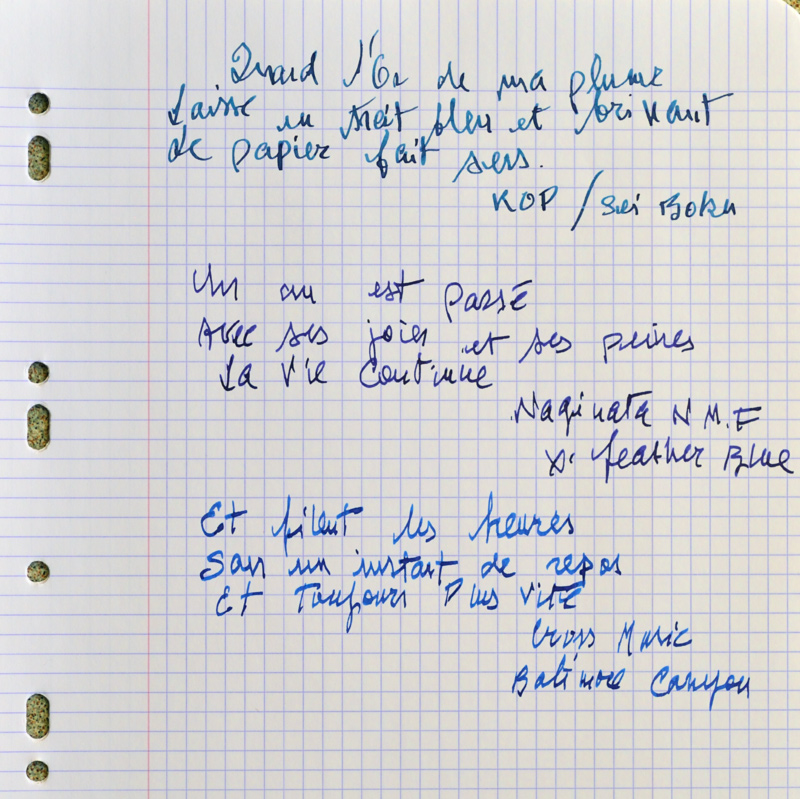 Quand l'Or de ma plume
Laisse un trait bleu et brillant
Le papier fait sens.
KOP / Sei Boku
Un an est passé
Avec ses joies et ses peines
La vie continue
Naginata N M.F
X. feather Blue
Et filent les heures
San un instant de repos
Et toujours Plus vite
Cross Music
Baltimore Canyon